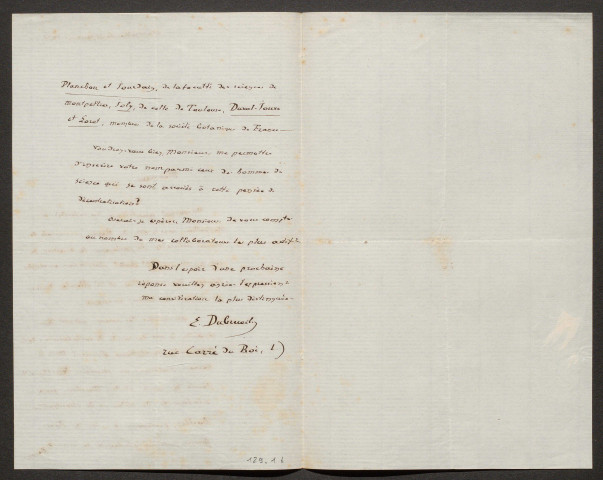 Planchon et Jourdain, de la faculté des sciences de
montpellier, Joly, de celle de Toulouse, Duval-Jouve
et Loret, membres de la société botanique de France.
Voudriez-vous bien, Monsieur, me permettre
d'inscrire votre nom parmi ceux de hommes de
science qui se sont associés à cette pensée de
décentralisation?
Oserais-je espérer, Monsieur de vous compter
au nombre de mes collaborateurs les plus actifs.
Dans l'espoir d'une prochaine
réponse veuillez agréer l'expression de
ma considération la plus distinguée.
E. Dubrueil
rue Carré du Roi, 1
129.16